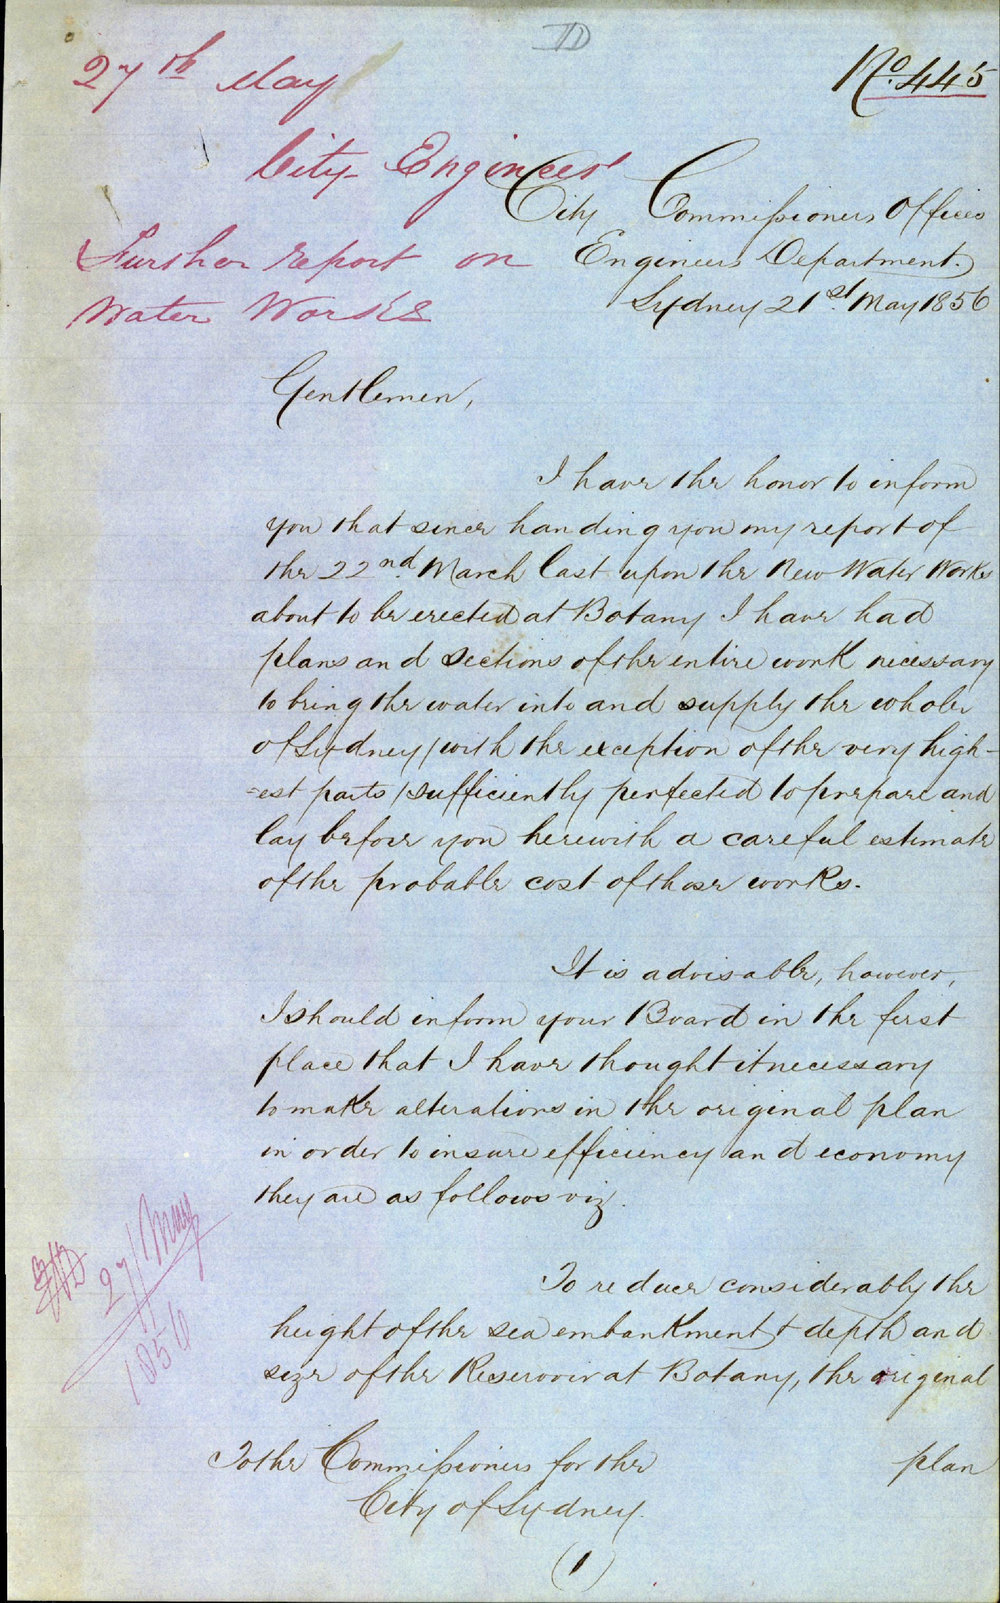 27th May
No. 445
City Engineer
City Commissioners Offices
Further report on
Engineers Department.
Water Works
Sydney 21st May 1856
Gentlemen,
I have the honor to inform
you that since handing you my report of
the 22nd. March last upon the New Water Works
about to be erected at Botany I have had
plans and sections of the entire work necessary
to bring the water into and supply the whole
of Sydney (with the exception of the very high-
=est parts) sufficiently perfected to prepare and
lay before you herewith a careful estimate
of the probable cost of those works.
It is advisable, however,
I should inform your Board in the first
place that I have thought it necessary
to make alterations in the original plan
in order to insure efficiency and economy
they are as follows viz.
To reduce considerably the
height of the sea embankment & depth and
size of the Reservoir at Botany, the original
plan
27/May
1856
To the Commissioners for the
City of Sydney.
(1)